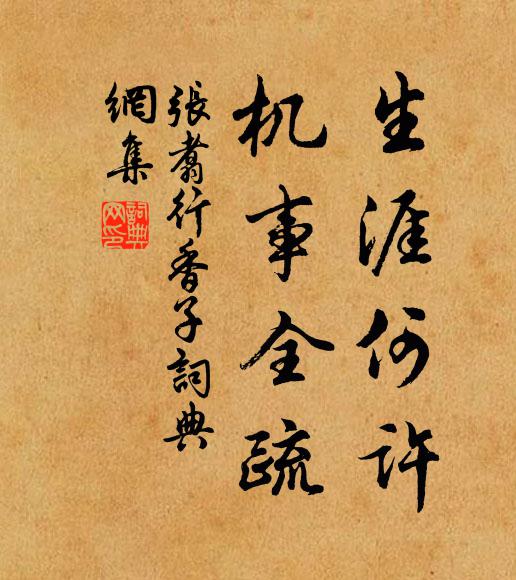 生涯何许
机事全疏
張翥行香子詞典
網集
詞典
网印